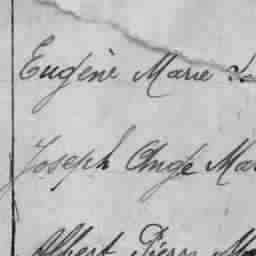 Eugène Marie
Joseph Ange Mar
Albert Pierre Ma